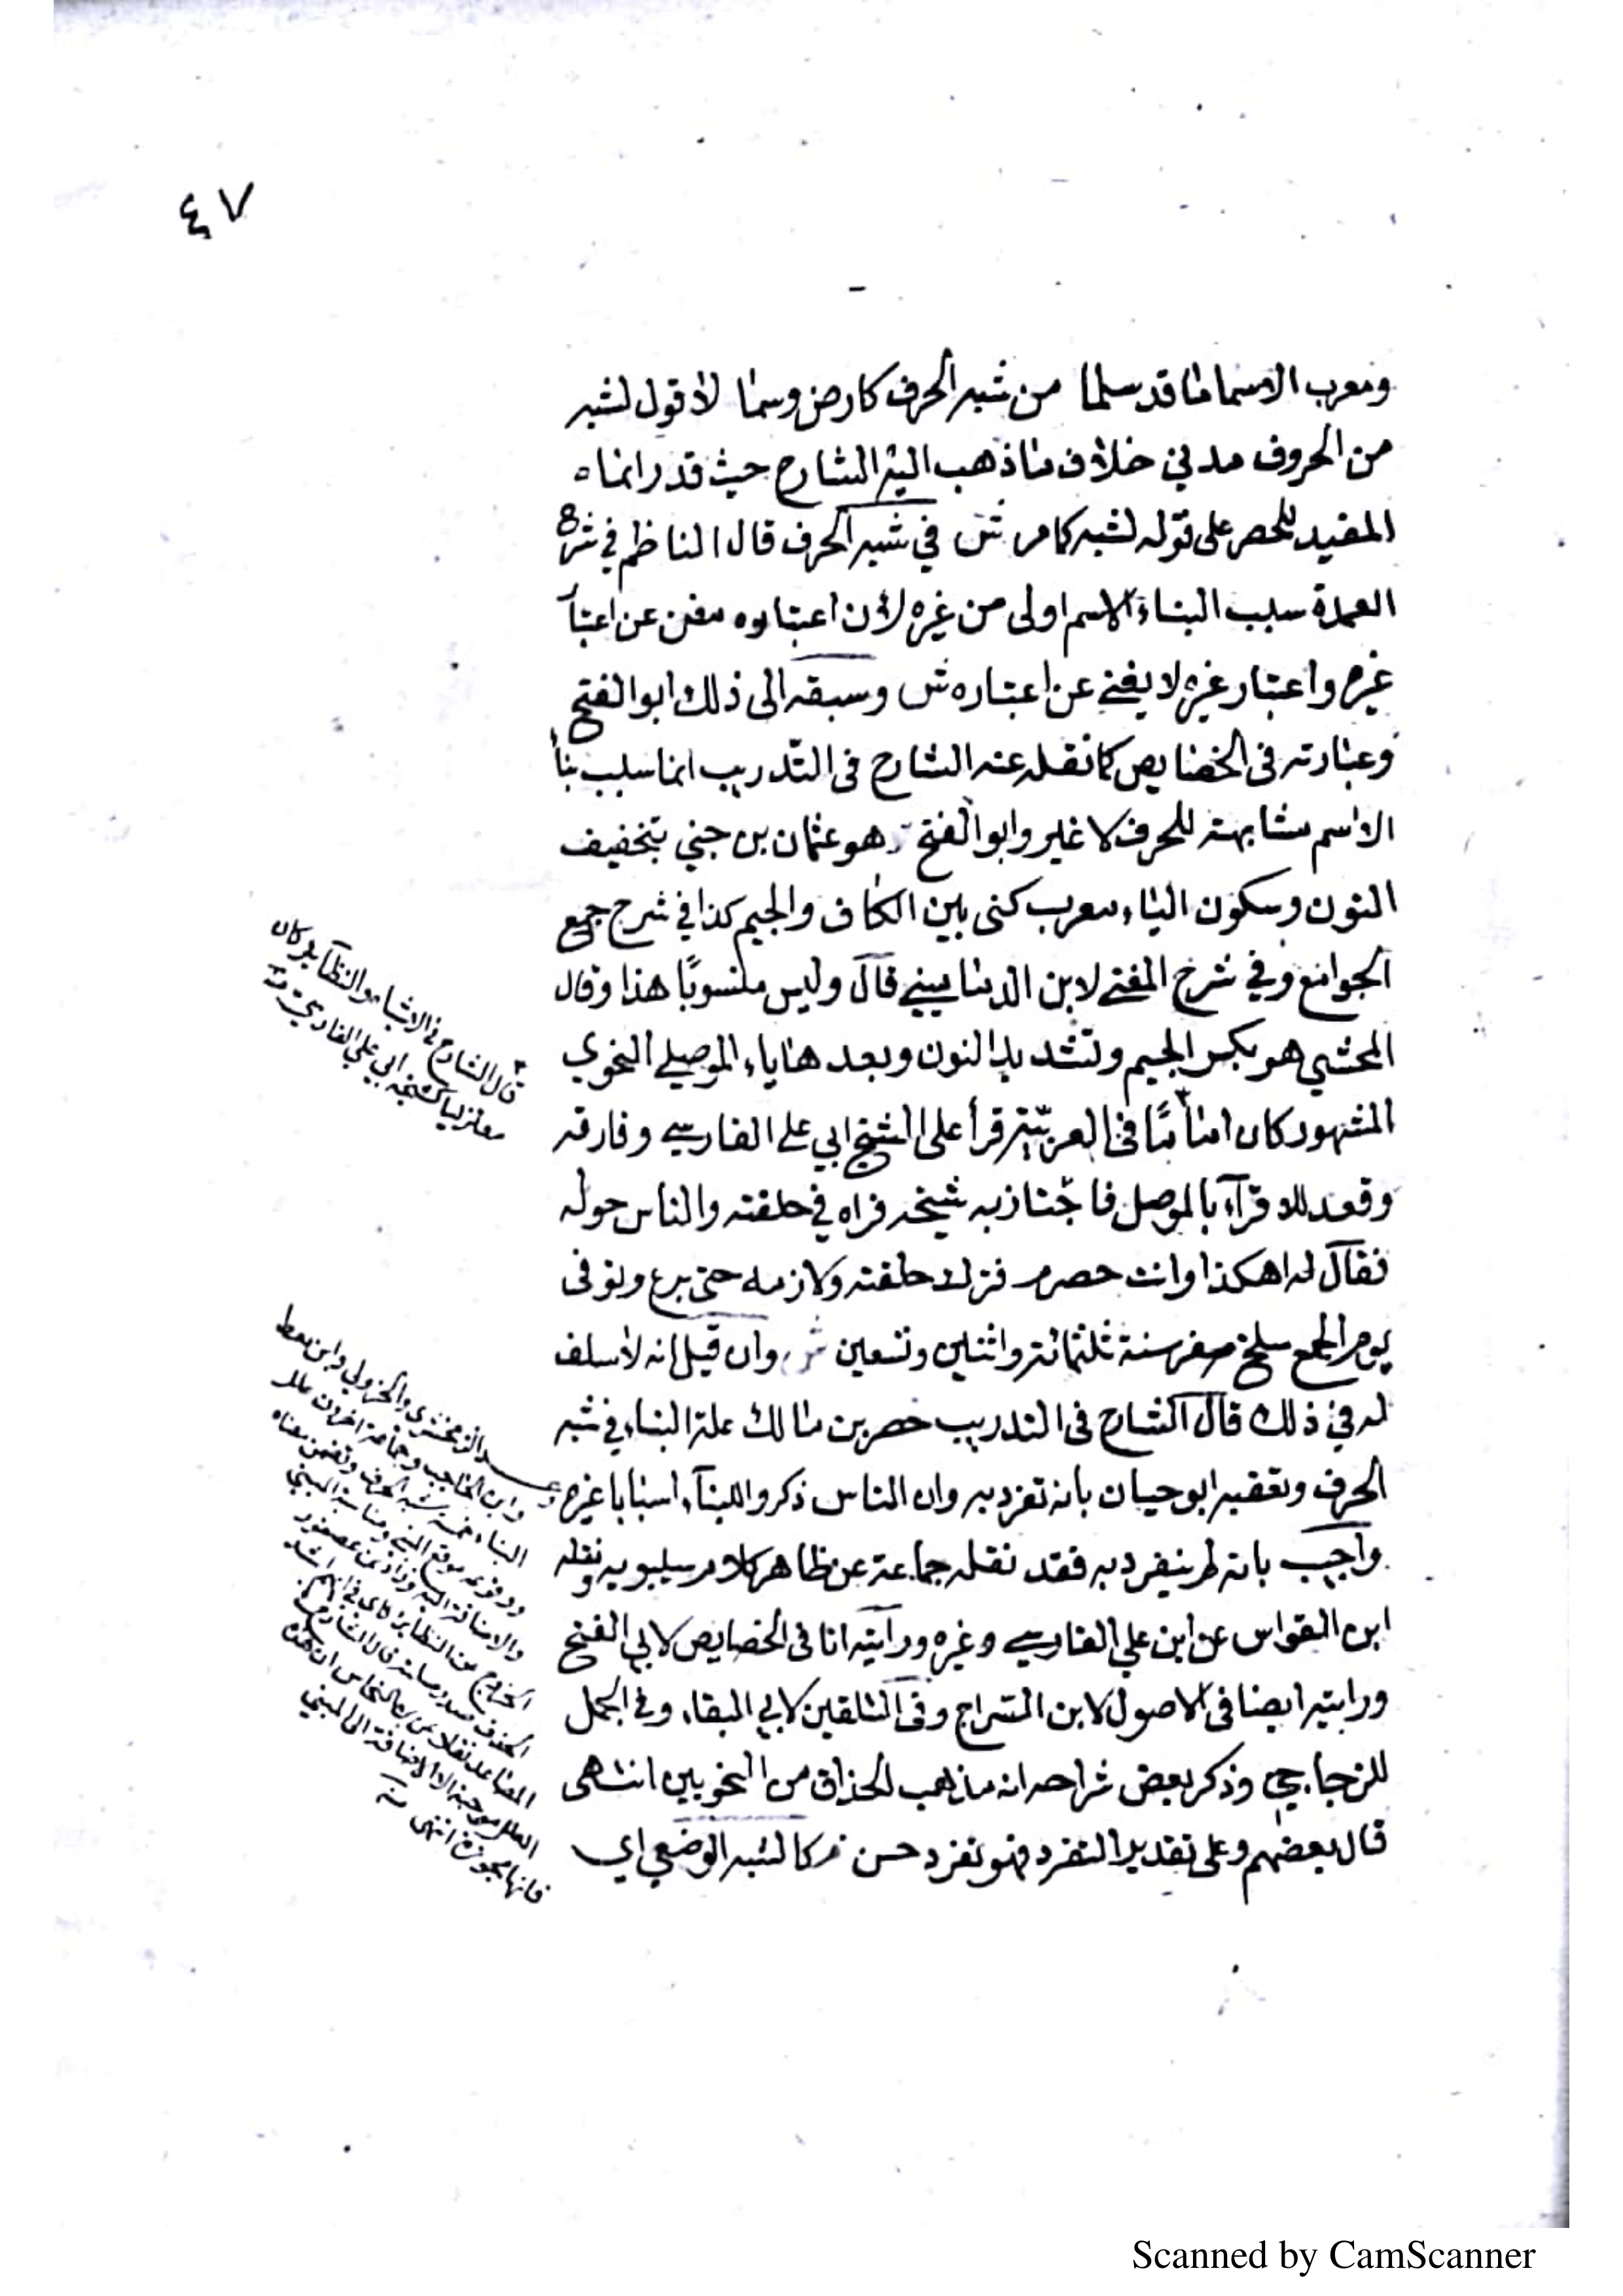 ٤٧
ومعرب الاسما ما قد سلما من شبه الحرف كارض وسما لا قول لشبه
من الحروف مدني خلاف ما ذهب اليه الشارح حيث قدر انما
المفيد للحصر على قوله لشبه كما مر ش في شبه الحرف قال الناظم في شرح
العمدة سبب البناء الاسم اولى من غيره لان اعتباره مغن عن اعتبا
غيره واعتبار غيره لا يغني عن اعتباره ش وسبقه الى ذلك ابو الفتح
وعبارته في الخصايص كما نقله عنه الشارح في التدريب انما سبب بناء
الاسم مشابهته للحرف لا غير وابو الفتح هو عثمان بن جني بتخفيف
النون وسكون الياء معرب كنى بين الكاف والجيم كذا في شرح جمع
الجوامع وفي شرح المغني لابن الدماميني قال وليس منسوبًا هذا وقال
المحشي هو بكسر الجيم وتشديد النون وبعدها ياء الموصلي النحوي
المشهور كان امامًا في العربيّة قرأ على الشيخ ابي علي الفارسي وفارقه
وقعد للاقرآء بالموصل فاجتاز به شيخه فراه في حلقته والناس حوله
فقال له اهكذا وانت حصرم فترك حلقته ولازمه حتى برع وتوفى
يوم الجمع سلخ صفر سنة ثلثمائة واثنتين وتسعين ش وان قيل انه لا سلف
له في ذلك قال الشارح في التدريب حصر بن مالك علة البناء في شبه
الحرف وتعقبه ابو حيان بانه تفرد به وان الناس ذكروا للبنآء اسبابا غيره
واجيب بانه لم ينفرد به فقد نقله جماعة عن ظاهر كلام سيبويه ونقله
ابن القواس عن ابن علي الفارسي وغيره ورأيته انا في الخصايص لابي الفتح
ورايته ايضا في الاصول لابن السراج وفي التلقين لابي البقاء وفي الجمل
للزجاجي وذكر بعض شراحه انه مذهب الحذاق من النحويين انتهى
قال بعضهم وعلى تقدير التفرد فهو تفرد حسن م كالشبه الوضعي اي
قال الشارح في الاشباه والنظآير كان
معتزليا كشيخه ابي علي الفارسي
الزمخشري والجزولي وابن معط
وابن الحاجب وجماعة اخرون علل
البناء خمسة شبه الحرف وتضمن معناه
ووقوعه موقع المبني ومناسبة المبني
والاضافة اليه وزاد ابن عصفور
الخروج عن النظاير
قال الشارح
نقلا عن ابن النحاس ان هذه
العلل موجبة الا الاضافة الى المبني
فانها مجوزة انتهى
Scanned by CamScanner